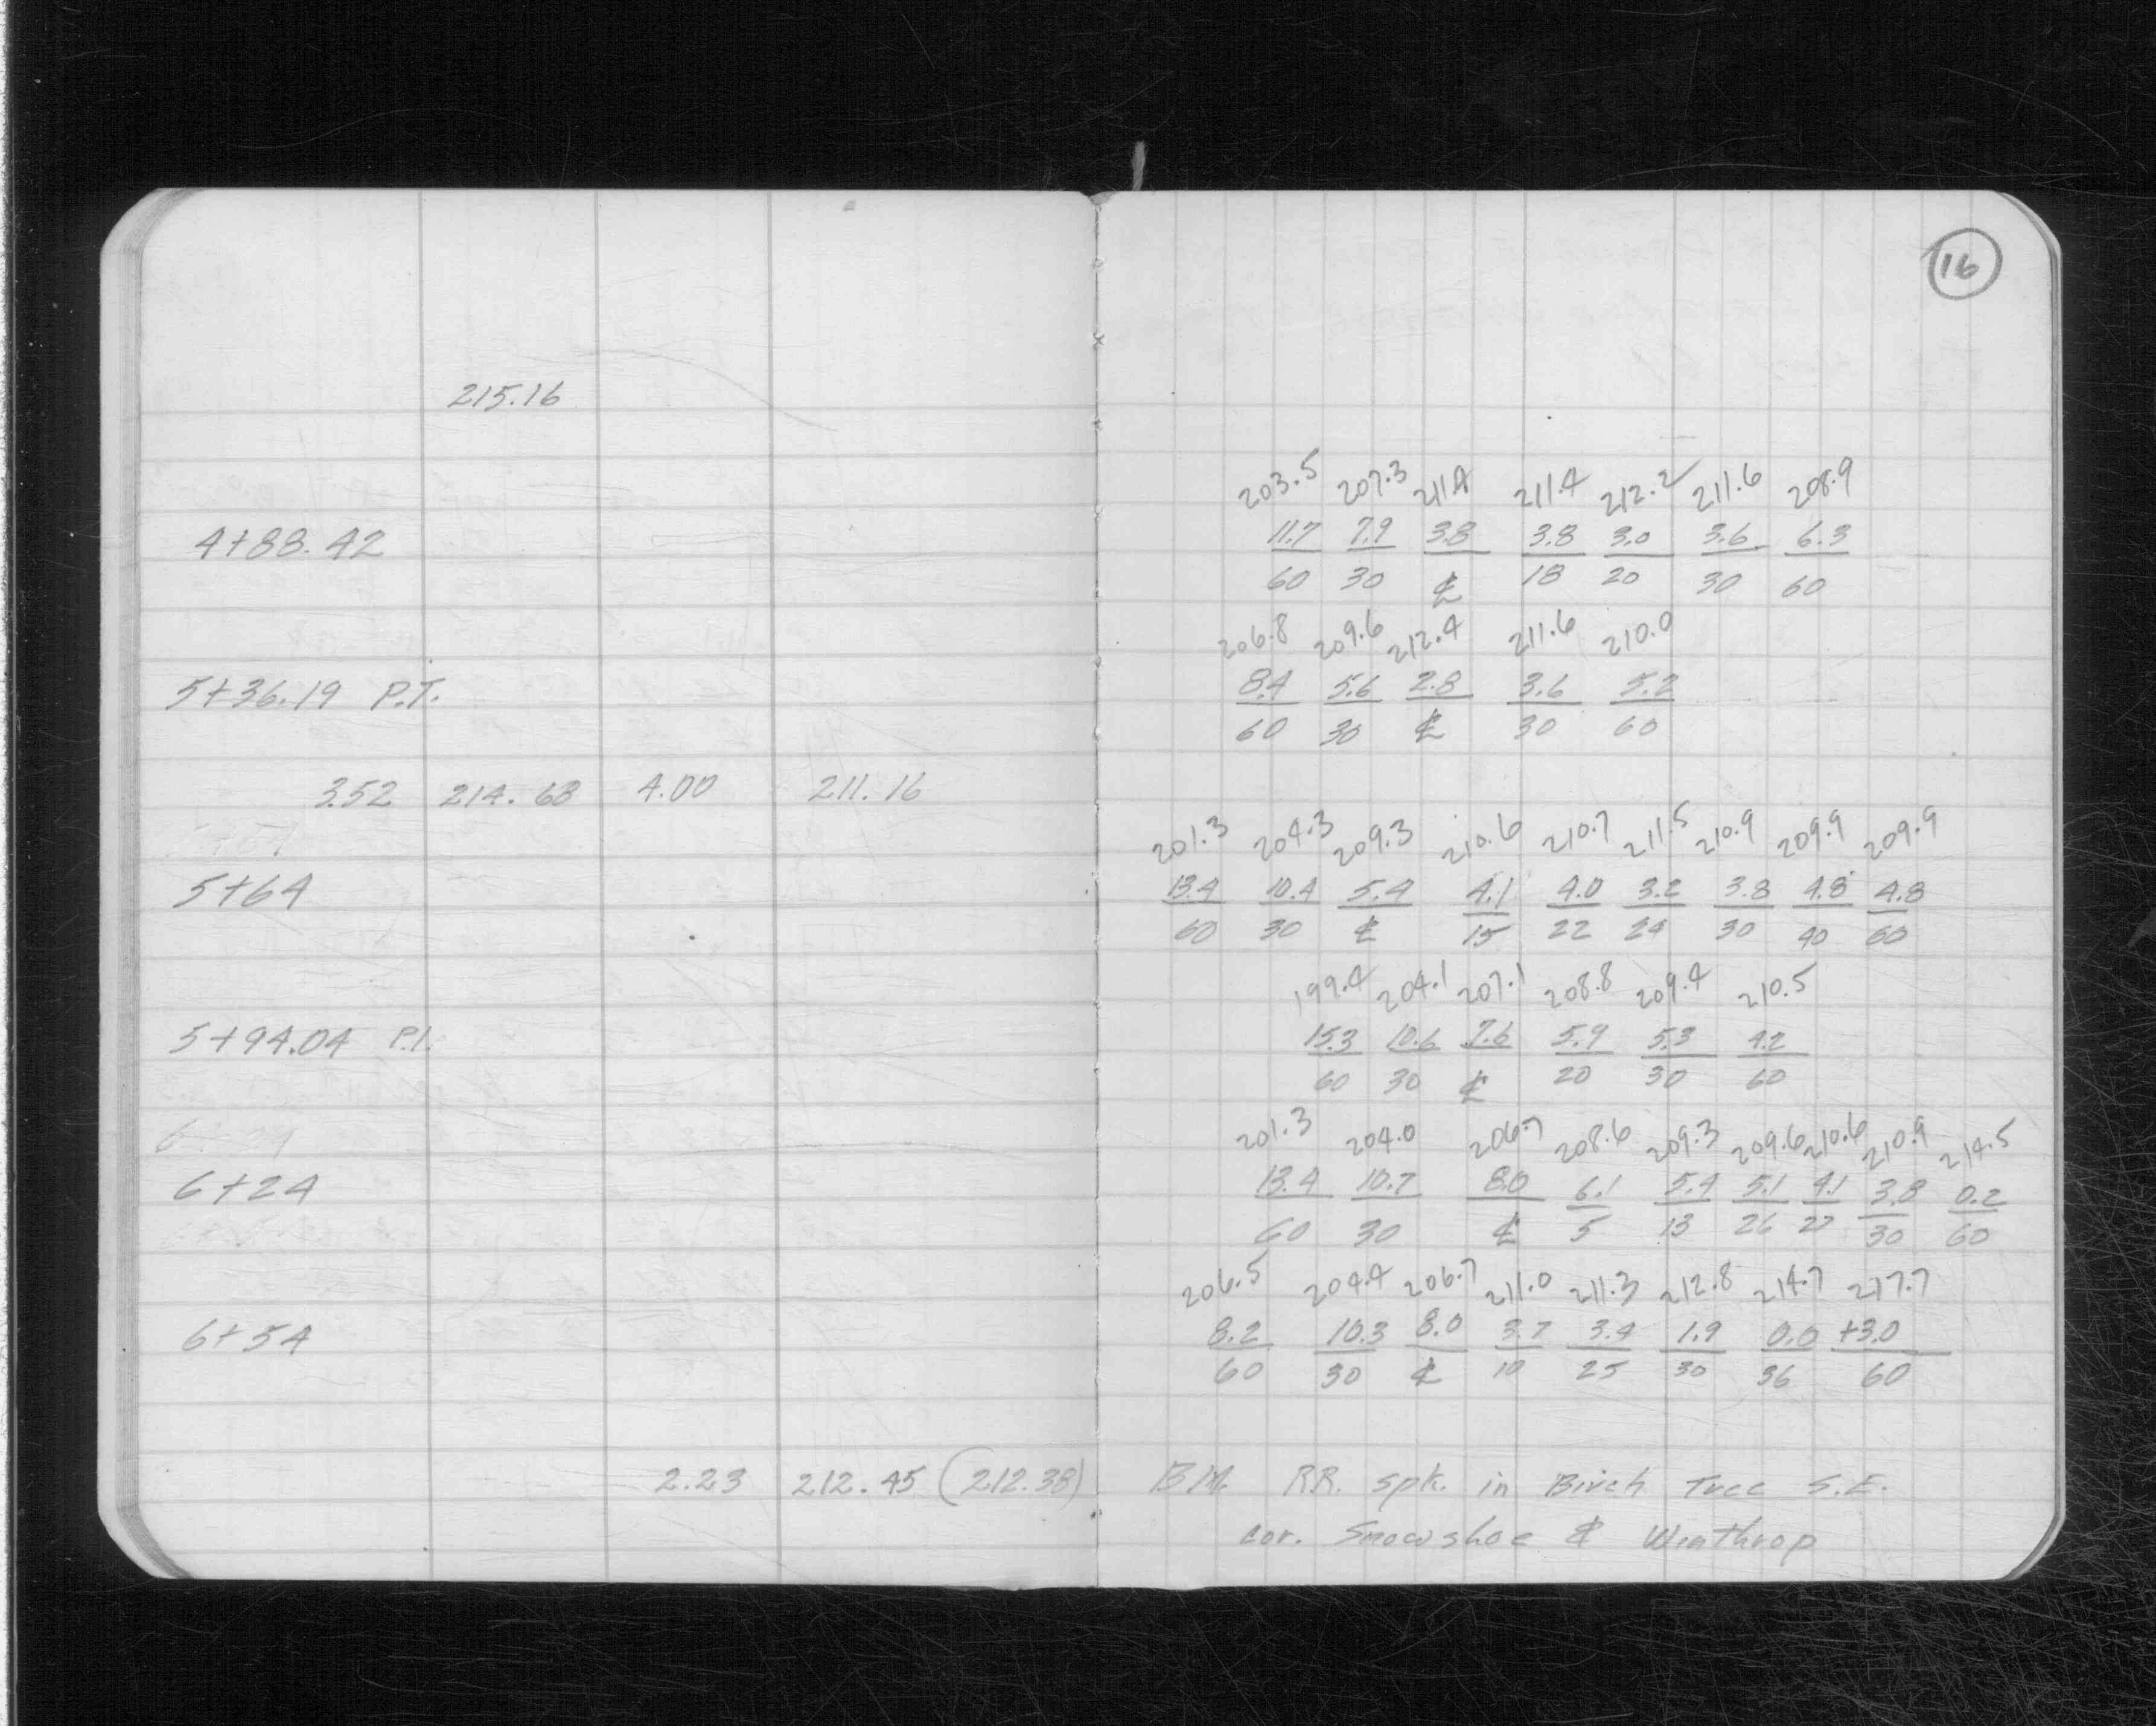 16
215.16
203.5 207.3 211.4 211.4 212.2 211.6 208.9
4+88.42 11.7 7.9 3.8 3.8 3.0 3.6 6.3
60 30 ℄ 18 20 30 60
206.8 209.6 212.4 211.6 210.0
5+36.19 P.T. 8.4 5.6 2.8 3.6 5.2
60 30 ℄ 30 60
3.52 214.68 4.00 211.16
201.3 204.3 209.3 210.6 210.7 211.5 210.9 209.9 209.9
5+64 13.4 10.4 5.4 4.1 4.0 3.2 3.8 4.8 4.8
60 30 ℄ 15 22 24 30 40 60
199.4 204.1 207.1 208.8 209.4 210.5
5+94.04 P.I. 15.3 10.6 7.6 5.9 5.3 4.2
60 30 ℄ 20 30 60
201.3 204.0 206.7 208.6 209.3 209.6 210.6 210.9 214.5
6+24 13.4 10.7 8.0 6.1 5.4 5.1 4.1 3.8 0.2
60 30 ℄ 5 13 26 27 30 60
206.5 204.4 206.7 211.0 211.3 212.8 214.7 217.7
6+54 8.2 10.3 8.0 3.7 3.4 1.9 0.0 +3.0
60 30 ℄ 10 25 30 36 60
2.23 212.45 (212.38) BM RR. spk. in Birch Tree S.E.
cor. Snowshoe & Winthrop